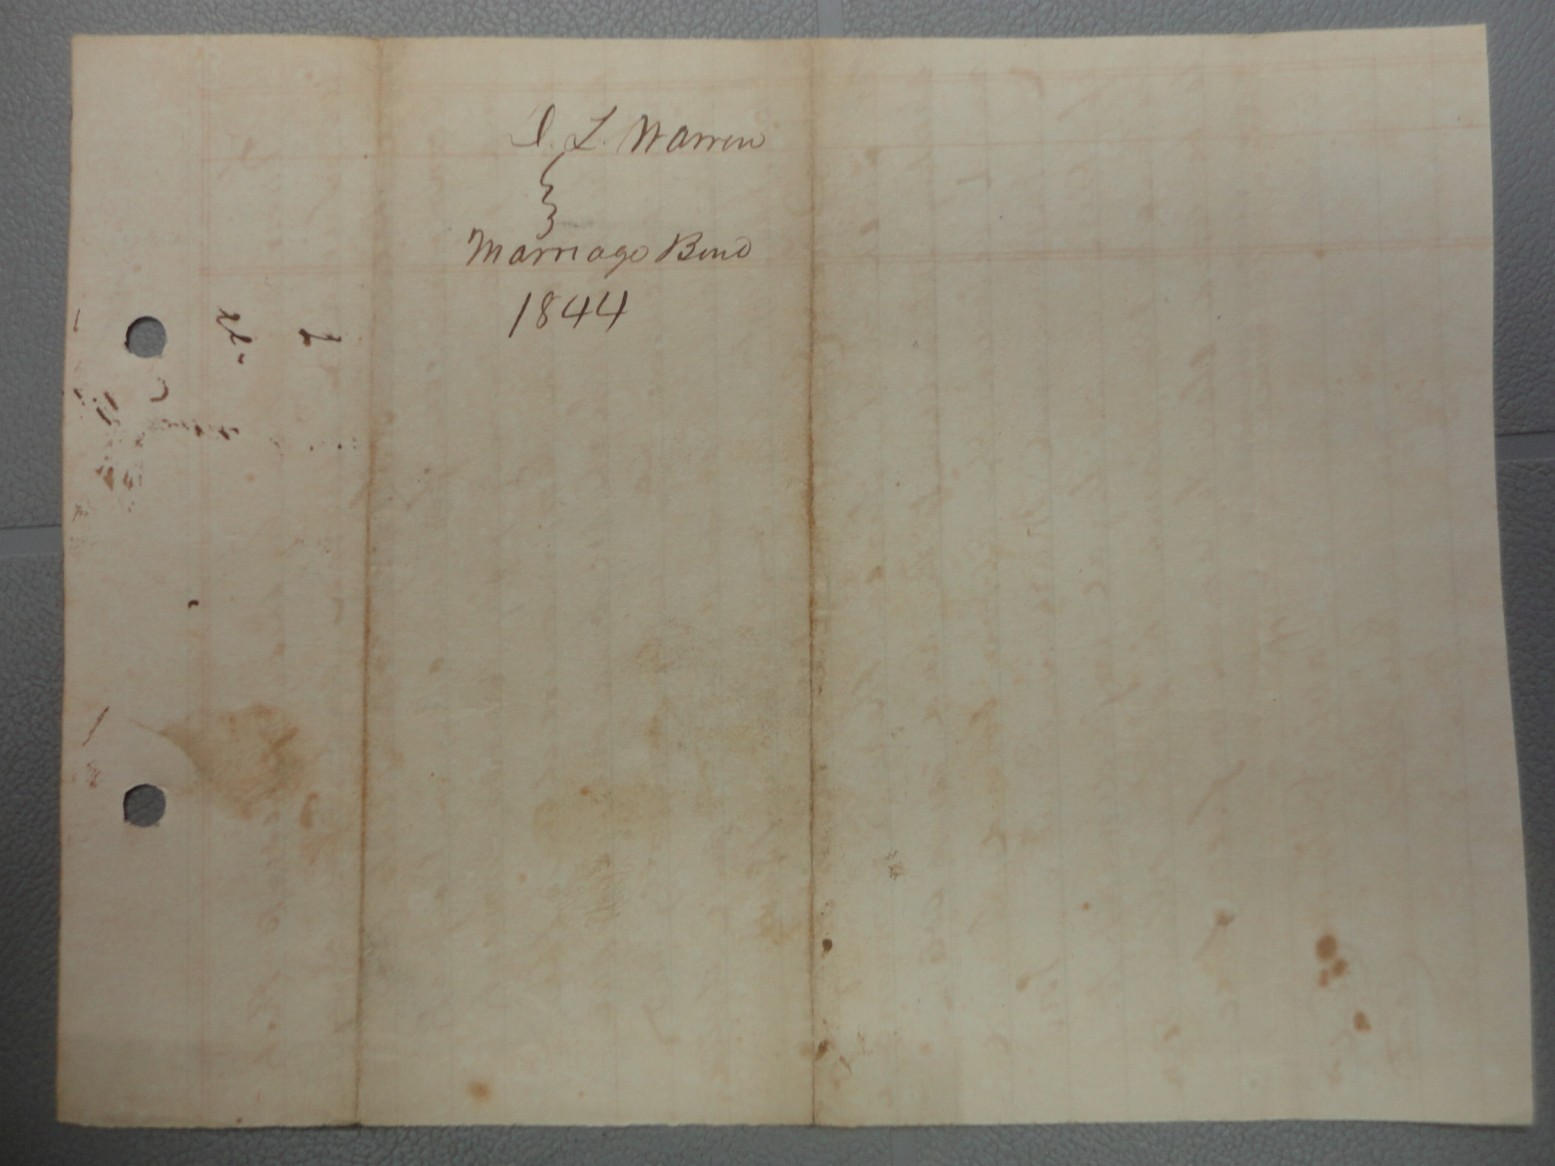 L. Warren
Marriage Bond
1844